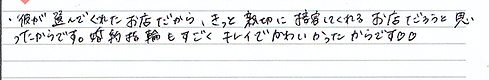 ・彼が選んでくれたお店だから、きっと親切に接客してくれるお店だろうと思
ったからです。婚約指輪もすごくキレイでかわいかったからです♡♡